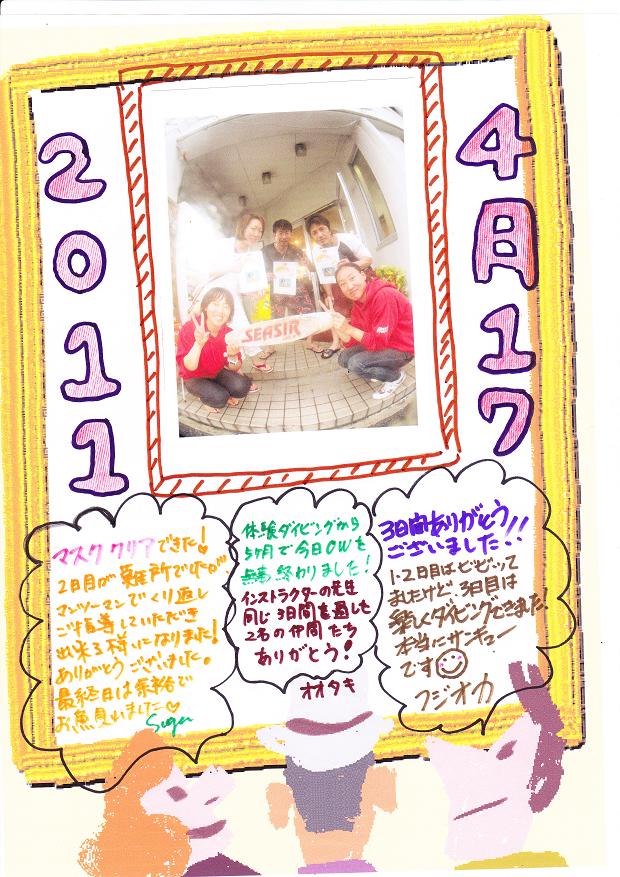 2011
4月17
SEASIR
マスククリアできた!
2日目が難所でしたが、
マンツーマンでくり返し
ご指導していただき
出来る様になりました!
ありがとうございました。
最終日は余裕で
お魚見いました♡
Suga
体験ダイビングから
5ヶ月で今日OWを
無事終わりました!
インストラクターの先生
同じ3日間を過した
2名の仲間たち
ありがとう!
オオタキ
3日間ありがとう
ございました!!
1・2日目はビビって
ましたけど、3日目は
楽しくダイビングできました
本当にサンキュー
です
フジオカ